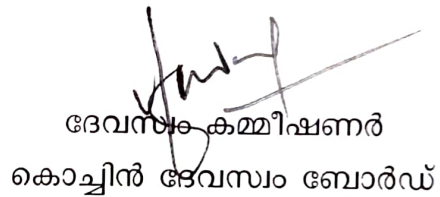 ദേവസ്വം കമ്മീഷണർ
കൊച്ചിൻ ദേവസ്വം ബോർഡ്